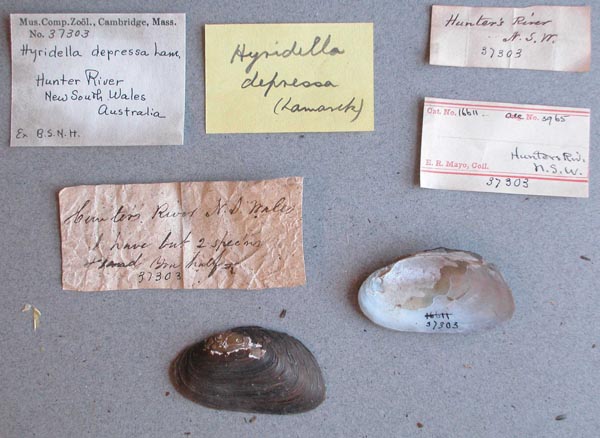 Mus.Comp.Zoöl., Cambridge, Mass.
No. 37303
Hyridella depressa Lam.
Hunter River
New South Wales
Australia
Ex B.S.N.H.
Hyridella
depressa
(Lamarck)
Hunter's River
N.S.W.
37303
Cat. No. 16611 acc No. 3965
Hunters Riv.
N.S.W.
E. R. Mayo, Coll.
37303
Hunters River N.S. Wales
I have but 2 specins
half
37303
16611
37303